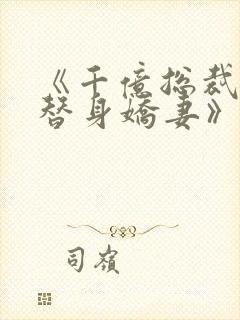 《千億总裁
替身嬌妻》
司嶺